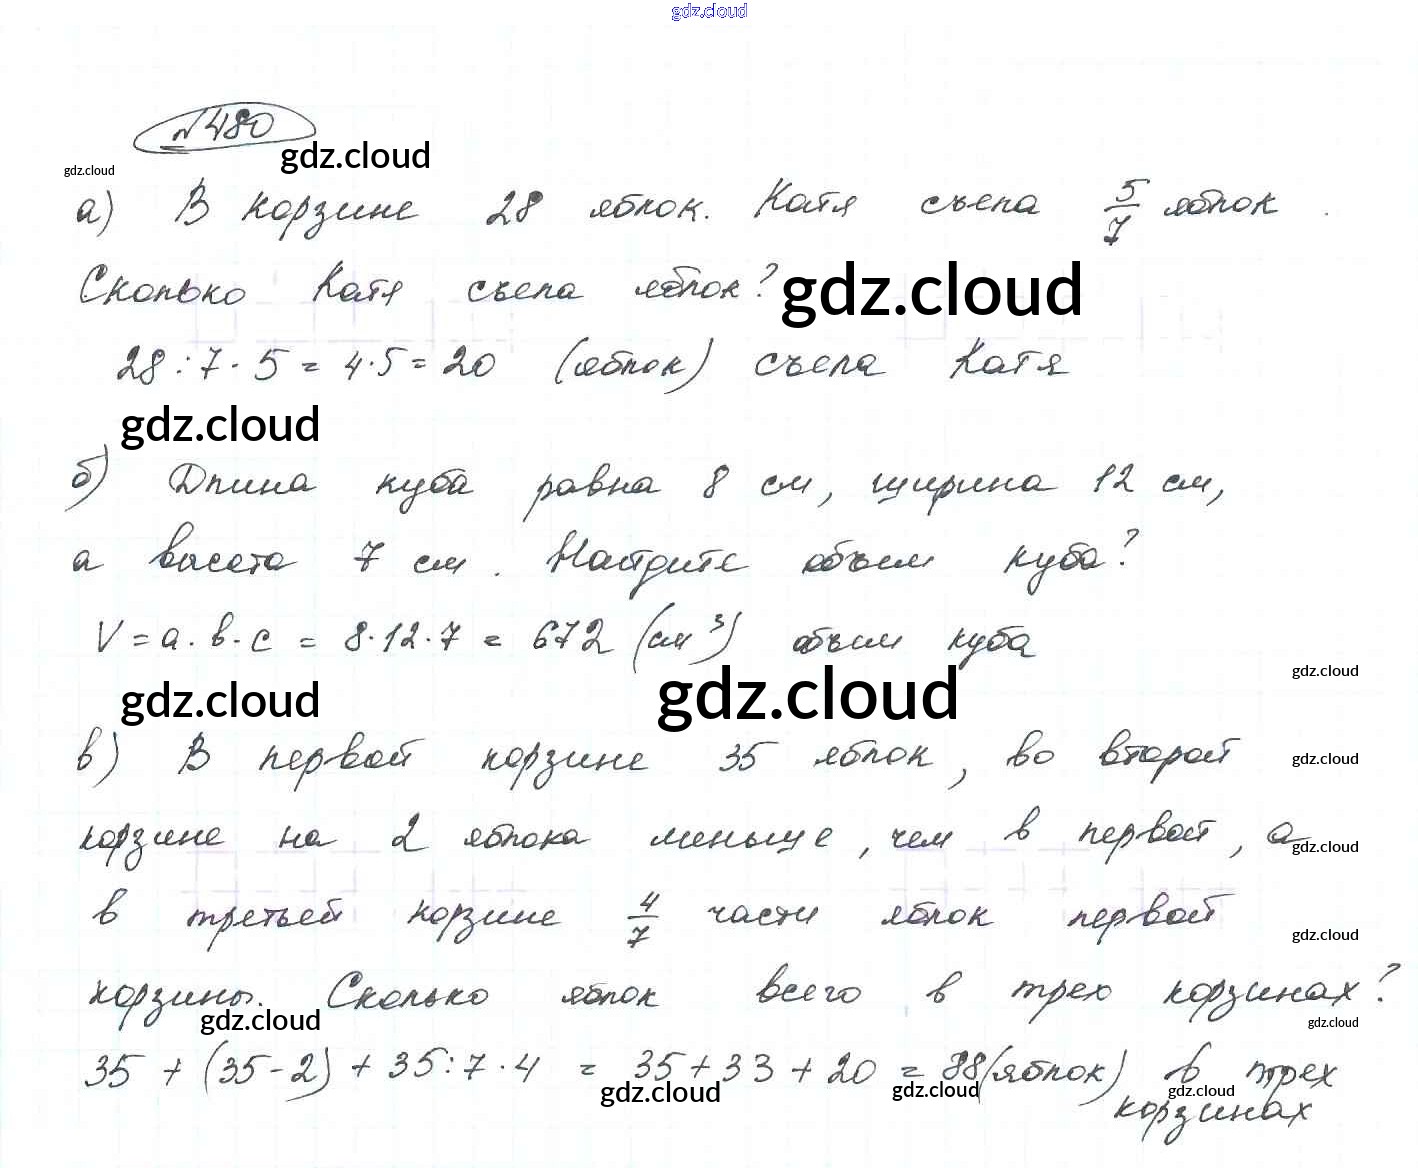 gdz.cloud
№480
gdz.cloud
gdz.cloud
а) В корзине 28 яблок. Катя съела 5/7 яблок.
Сколько Катя съела яблок?
gdz.cloud
28 : 7 · 5 = 4 · 5 = 20 (яблок) съела Катя
gdz.cloud
б) Длина куба равна 8 см, ширина 12 см,
а высота 7 см. Найдите объем куба?
V = a · b · c = 8 · 12 · 7 = 672 (см³) объем куба
gdz.cloud
gdz.cloud
gdz.cloud
в) В первой корзине 35 яблок, во второй
gdz.cloud
корзине на 2 яблока меньше, чем в первой, а
gdz.cloud
в третьей корзине 4/7 части яблок первой
gdz.cloud
корзины. Сколько яблок всего в трех корзинах?
gdz.cloud
gdz.cloud
35 + (35 - 2) + 35 : 7 · 4 = 35 + 33 + 20 = 88 (яблок) в трех
корзинах
gdz.cloud
gdz.cloud
gdz.cloud